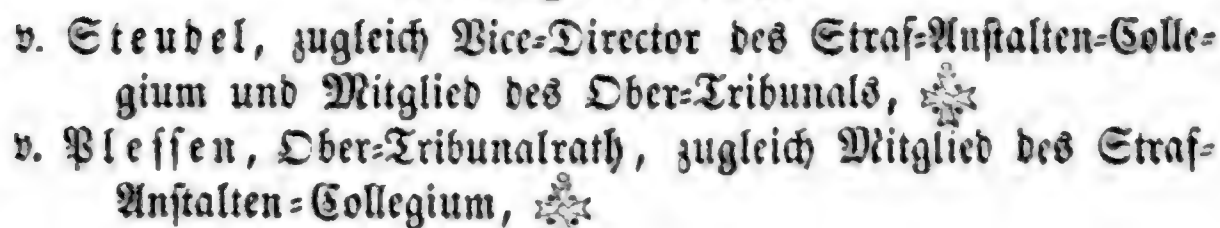 v. Steudel, zugleich Vice-Director des Straf-Anstalten-Colle-
gium und Mitglied des Ober-Tribunals,
v. Plessen, Ober-Tribunalrath, zugleich Mitglied des Straf-
Anstalten-Collegium,